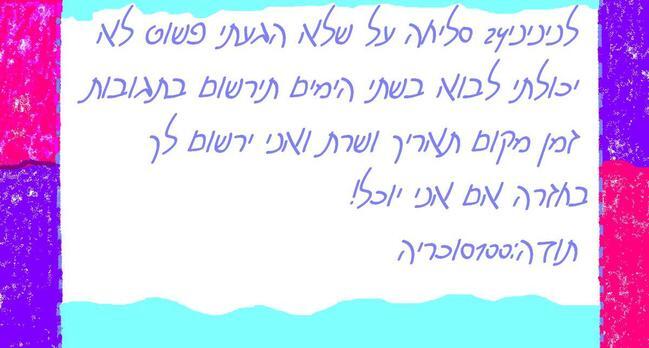 לניניניץ2 סליחה על שלא הגעתי פשוט לא
יכולתי לבוא בשתי הימים תירשום בתגובות
זמן מקום תאריך ושרת ואני ירשום לך
בחזרה אם אני יוכל!
תודה:100סוכריה